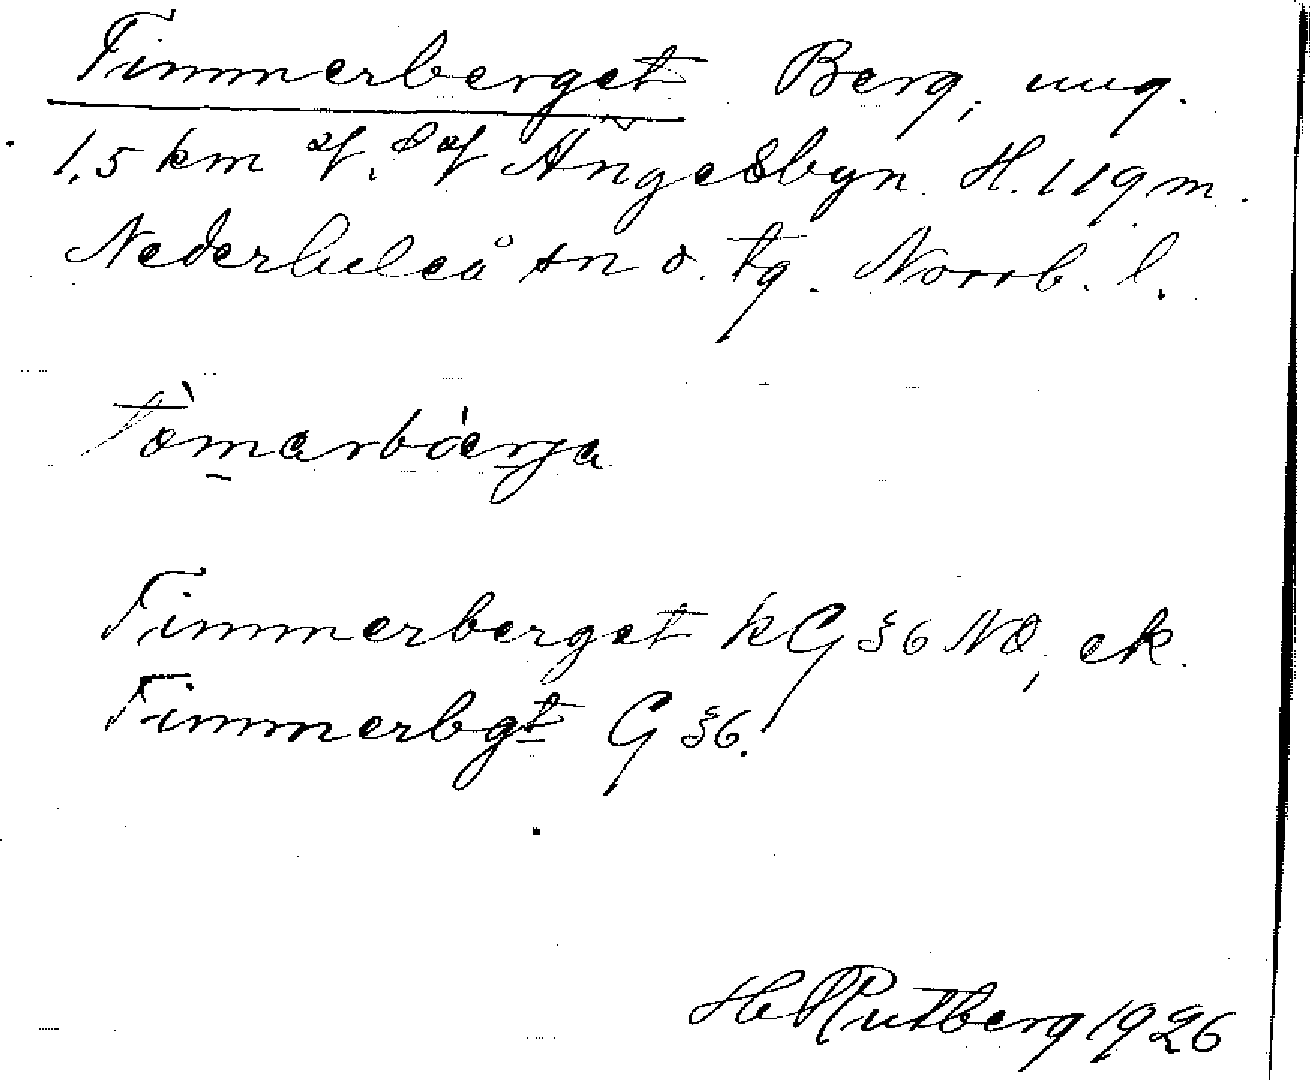 Timmerberget Berg, ung.
1,5 km of. S of Ängesbyn. H. 119 m.
Nederluleå sn o. tg. Norrb. l.
Timmerberget kG §6 NO, ek.
Timmerbgt G §6.
H Rutberg 1926